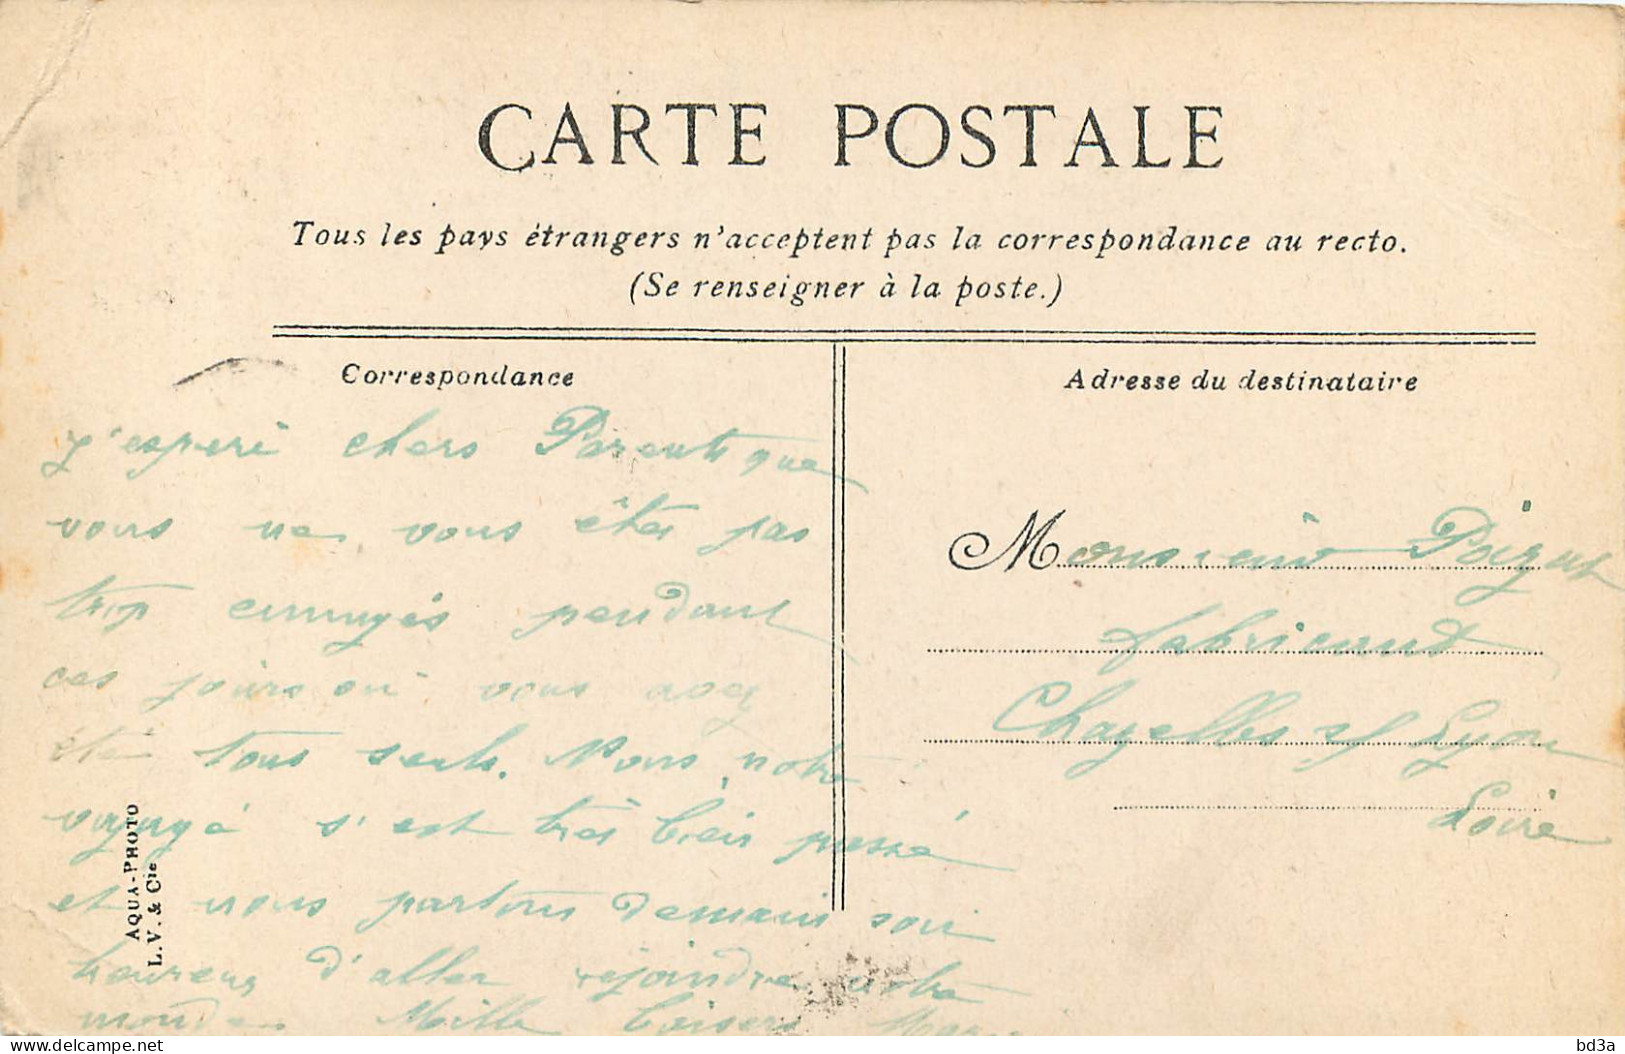 CARTE POSTALE
Tous les pays étrangers n'acceptent pas la correspondance au recto.
(Se renseigner à la poste.)
Correspondance
j'espère chers Parents que
vous ne vous êtes pas
trop ennuyés pendant
ces jours où vous avez
été tous seuls. Nous, notre
voyage s'est très bien passé
et nous partons demain soir
heureux d'aller rejoindre notre
Mille baisers
Adresse du destinataire
Monsieur Poizat
fabricant
Chazelles s/ Lyon
Loire
AQUA-PHOTO
L. V. & Cie
delcampe.net
bd3a